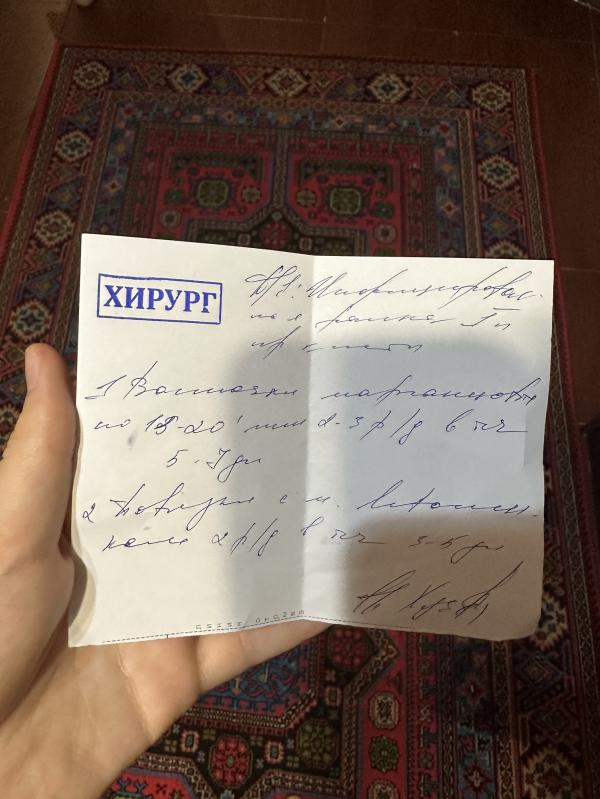 ХИРУРГ
Ds: Инфицирован-
ная ранка I п
пр кисти
1 Ванночки марганцовк
по 15-20' мин 2-3 р/д в теч
5-7 дн
2 Повязки с м. Левомек-
коль 2 р/д в теч 3-5 дн